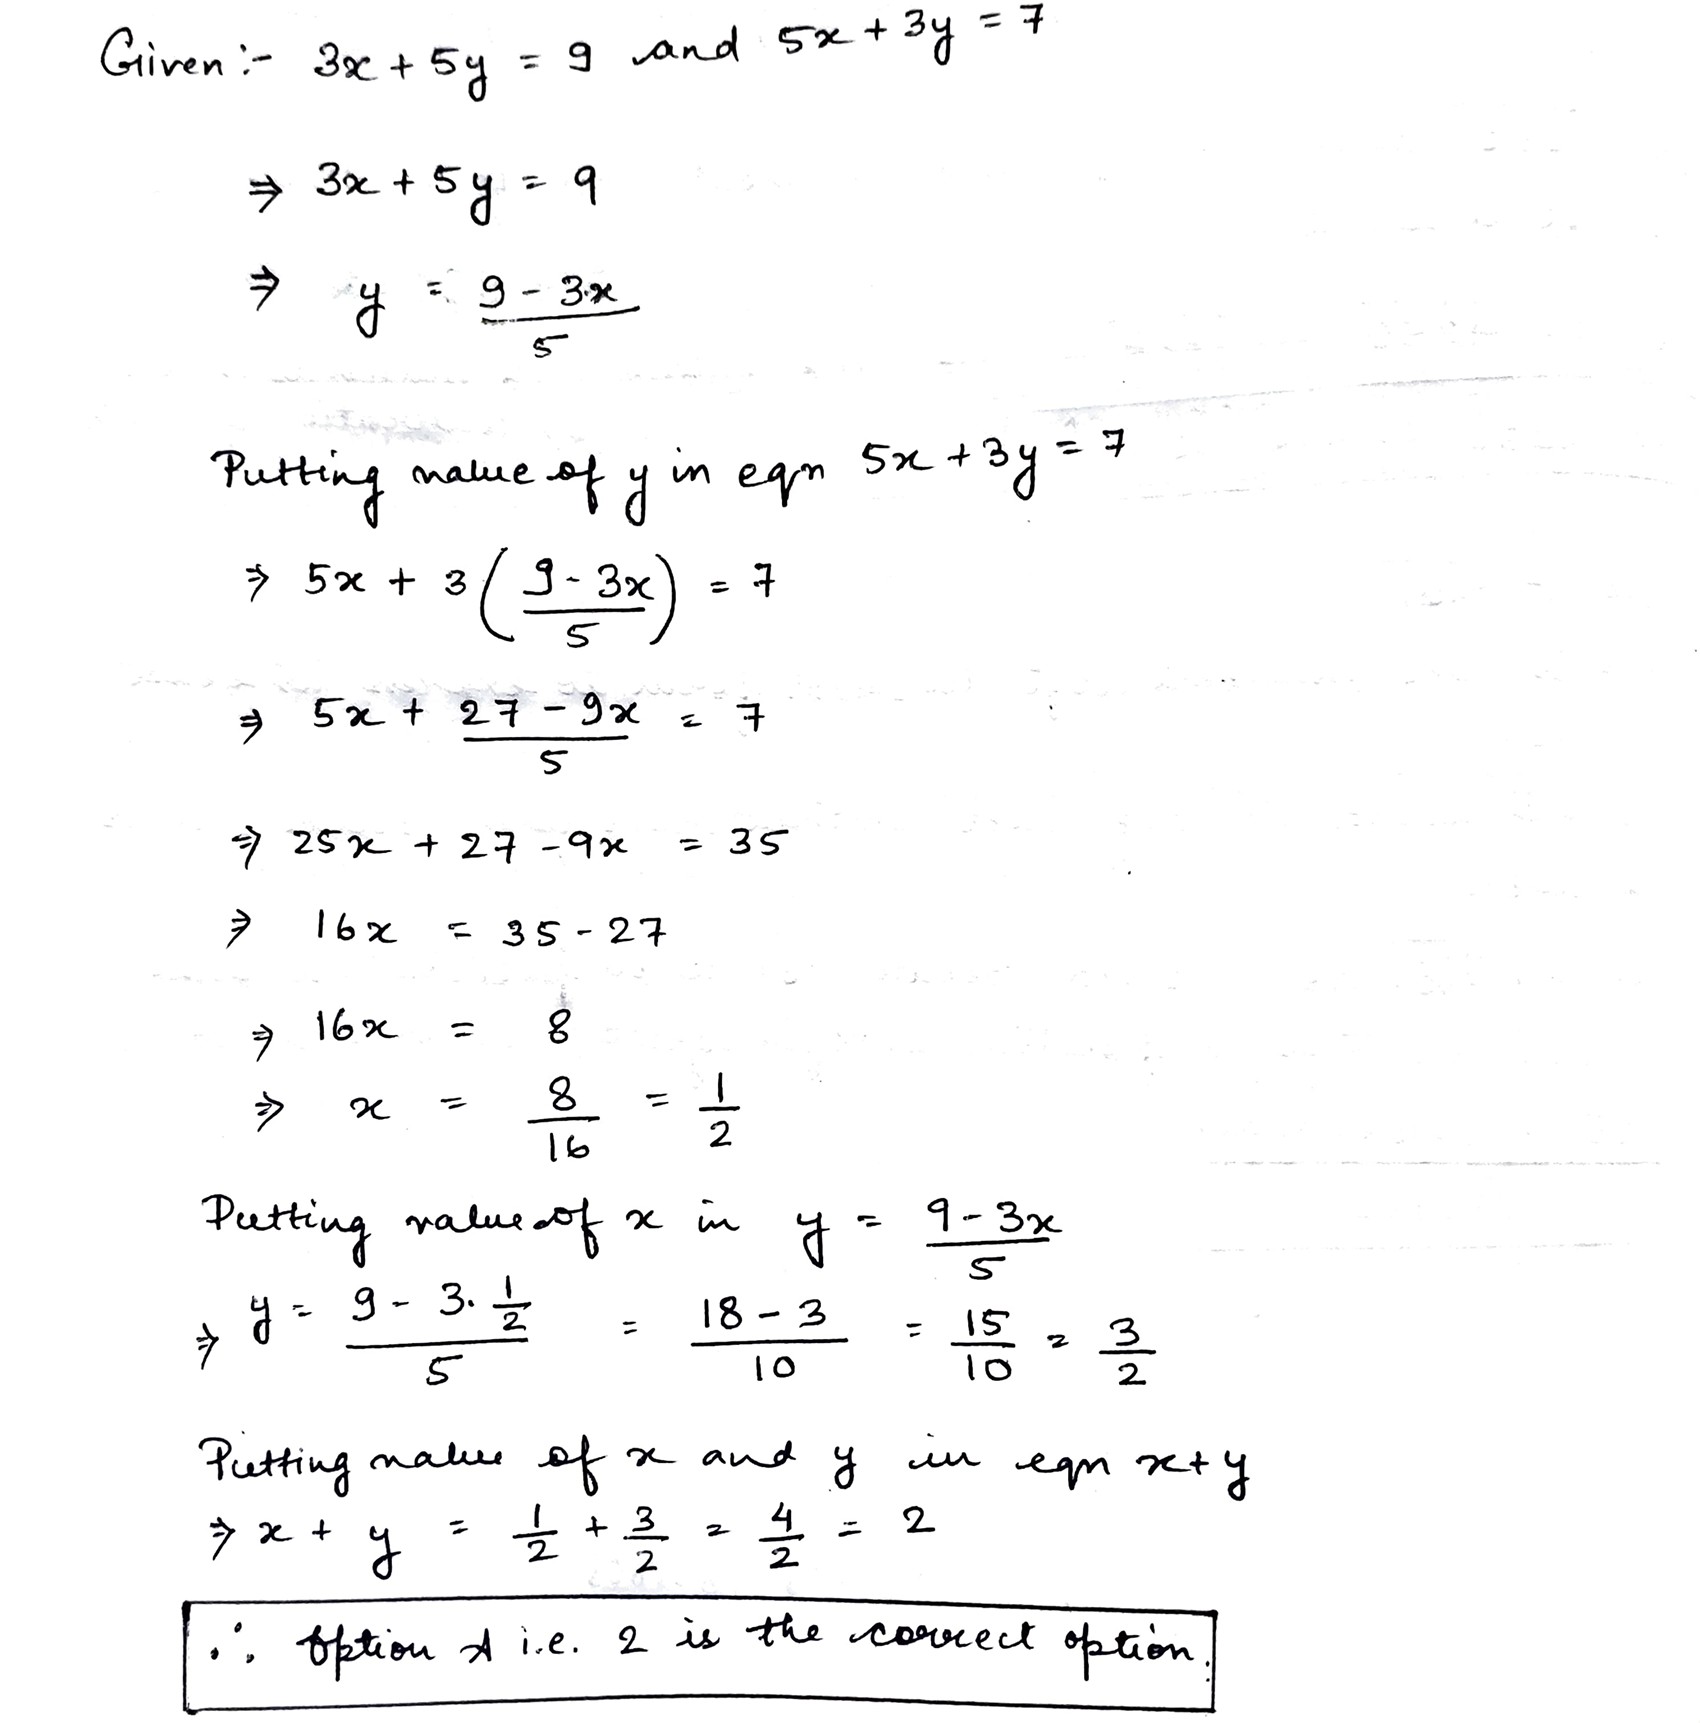 Given :- 3x + 5y = 9 and 5x + 3y = 7
⇒ 3x + 5y = 9
⇒ y = (9 - 3x)/5
Putting value of y in eqn 5x + 3y = 7
⇒ 5x + 3((9 - 3x)/5) = 7
⇒ 5x + (27 - 9x)/5 = 7
⇒ 25x + 27 - 9x = 35
⇒ 16x = 35 - 27
⇒ 16x = 8
⇒ x = 8/16 = 1/2
Putting value of x in y = (9 - 3x)/5
⇒ y = (9 - 3. 1/2)/5 = (18 - 3)/10 = 15/10 = 3/2
Putting value of x and y in eqn x + y
⇒ x + y = 1/2 + 3/2 = 4/2 = 2
∴ Option A i.e. 2 is the correct option.